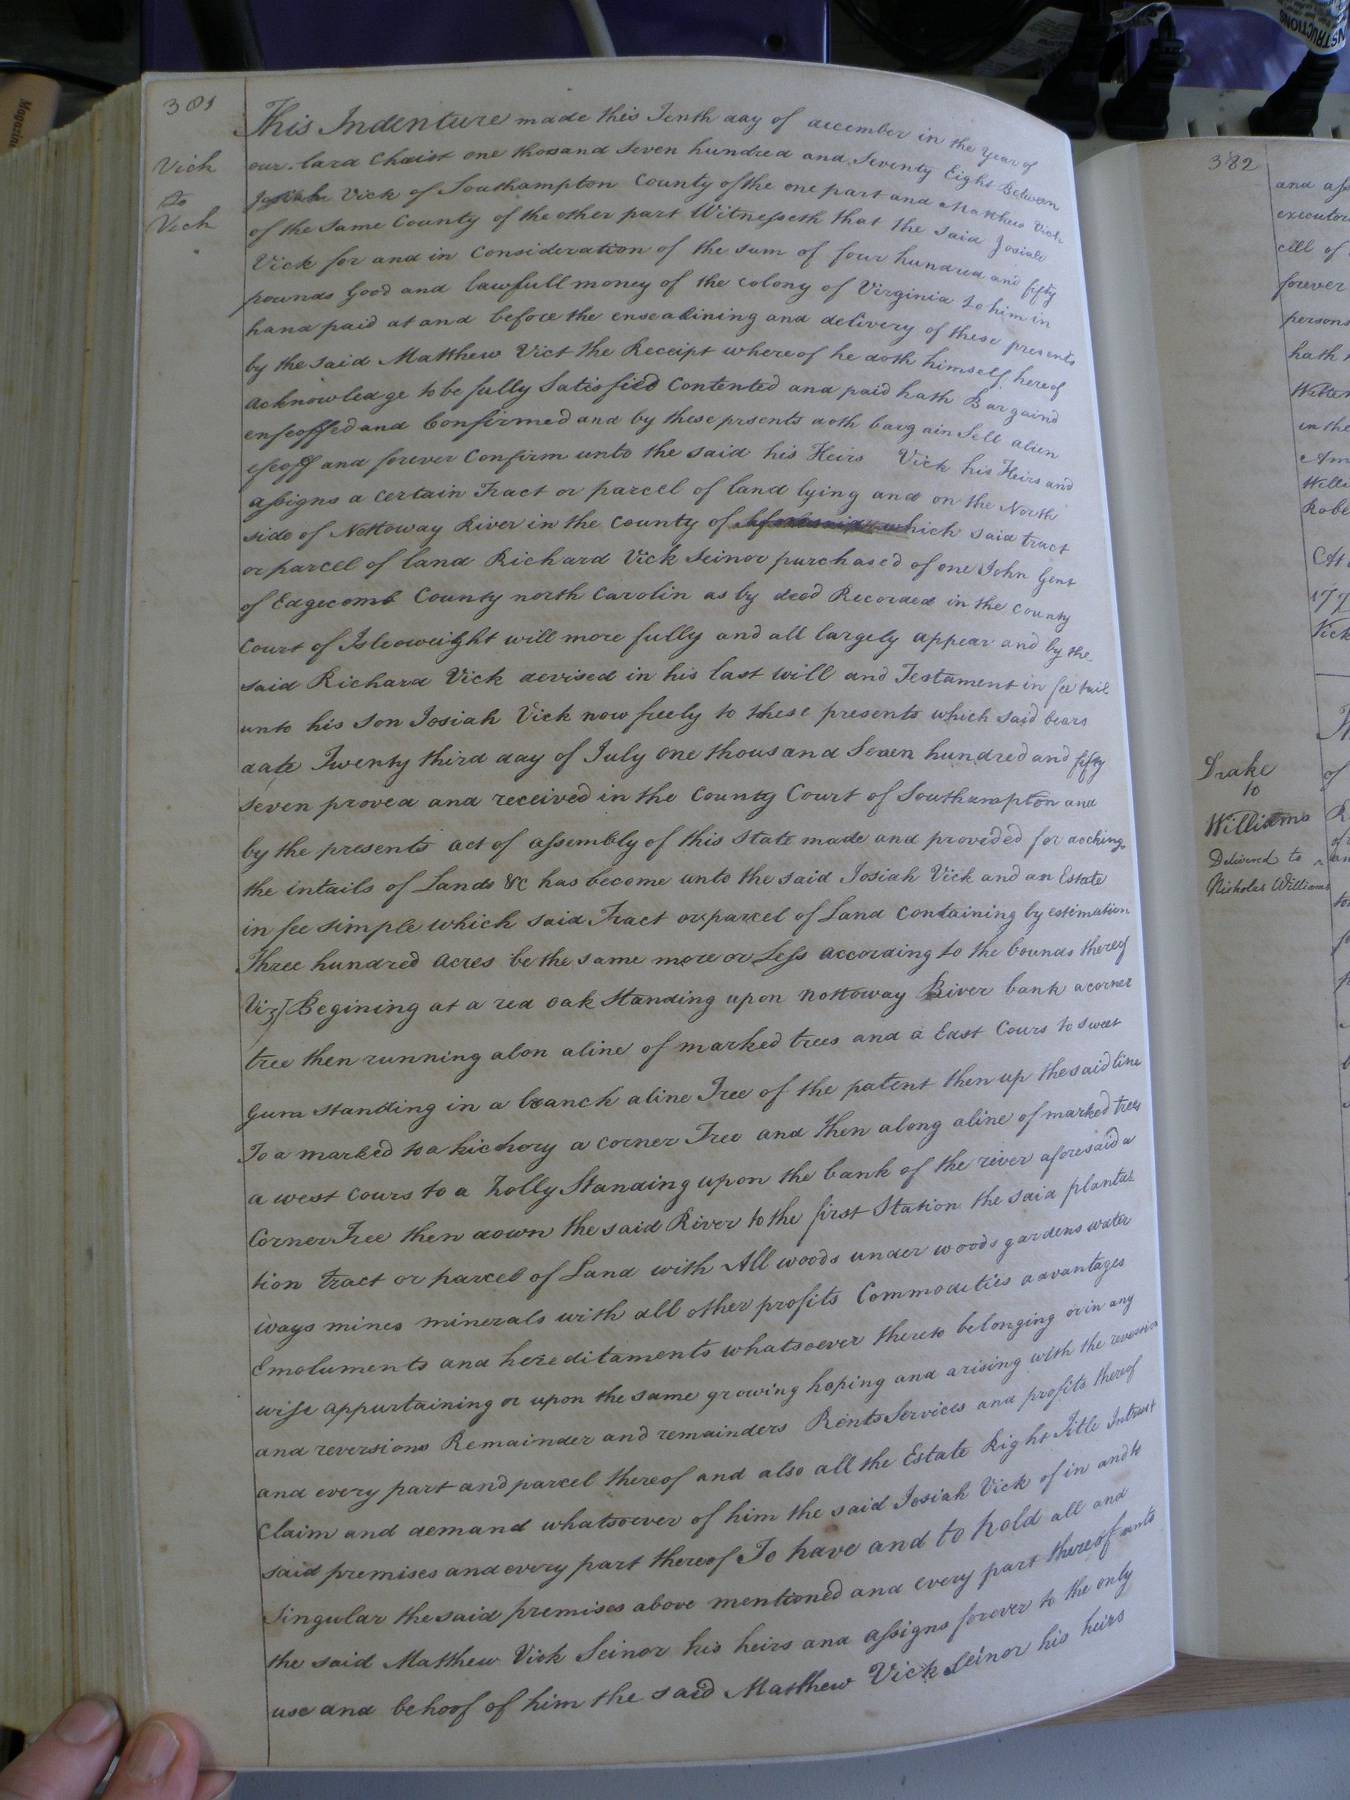 381
Vick
to
Vick
This Indenture made this Tenth day of december in the year of
our lard Chaist one thousand Seven hundred and Seventy Eight Between
Josiah Vick of Southampton County of the one part and Matthew Vick
of the same County of the other part Witnesseth that the said Josiah
Vick for and in Consideration of the sum of four hundred and fifty
pounds Good and lawfull money of the colony of Virginia to him in
hand paid at and before the ensealining and delivery of these presents
by the said Matthew Vict the Receipt whereof he doth himself hereof
acknowledge to be fully Satisfied Contented and paid hath Bargaind
enfeoffed and Confirmed and by these prsents doth bargain Sell alien
efeoff and forever Confirm unto the said his Heirs Vick his Heirs and
assigns a certain Tract or parcel of land lying and on the North
side of Nottoway River in the County of which said tract
or parcel of land Richard Vick Seinor purchased of one John Gent
of Edgecomb County north Carolin as by deed Recorded in the County
Court of Isleoweight will more fully and all largely appear and by the
said Richard Vick devised in his last will and Testament in fee tail
unto his son Josiah Vick now freely to these presents which said bears
date Twenty third day of July one thousand Seven hundred and fifty
Seven proved and received in the County Court of Southampton and
by the presents act of assembly of this State made and provided for docking
the intails of Lands &c has become unto the said Josiah Vick and an Estate
in fee simple which said Tract or parcel of Land Containing by estimation
Three hundred acres be the same more or Less according to the bounds thereof
Viz] Begining at a red oak Standing upon Nottoway River bank a corner
tree then running alon a line of marked trees and a East Cours to sweet
Gum standing in a branch a line Tree of the patent then up the said line
To a marked to a hickory a corner Tree and then along a line of marked trees
a west cours to a holly Standing upon the bank of the river aforesaid a
Corner Tree then down the said River to the first Station the said planta=
tion Tract or parcel of Land with All woods under woods gardens water
ways mines minerals with all other profits Commodities advantages
Emoluments and hereditaments whatsoever thereto belonging or in any
wise appurtaining or upon the same growing hoping and arising with the reversion
and reversions Remainder and remainders Rents Services and profits thereof
and every part and parcel thereof and also all the Estate Right Title Intrest
Claim and demand whatsoever of him the said Josiah Vick of in and to
said premises and every part thereof To have and to hold all and
Singular the said premises above mentioned and every part thereof unto
the said Matthew Vick Seinor his heirs and assigns forever to the only
use and behoof of him the said Matthew Vick Seinor his heirs
382
and
executor
of
forever
persons
hath
in the
Drake
to
Williams
Delivered to
Nicholas Williams